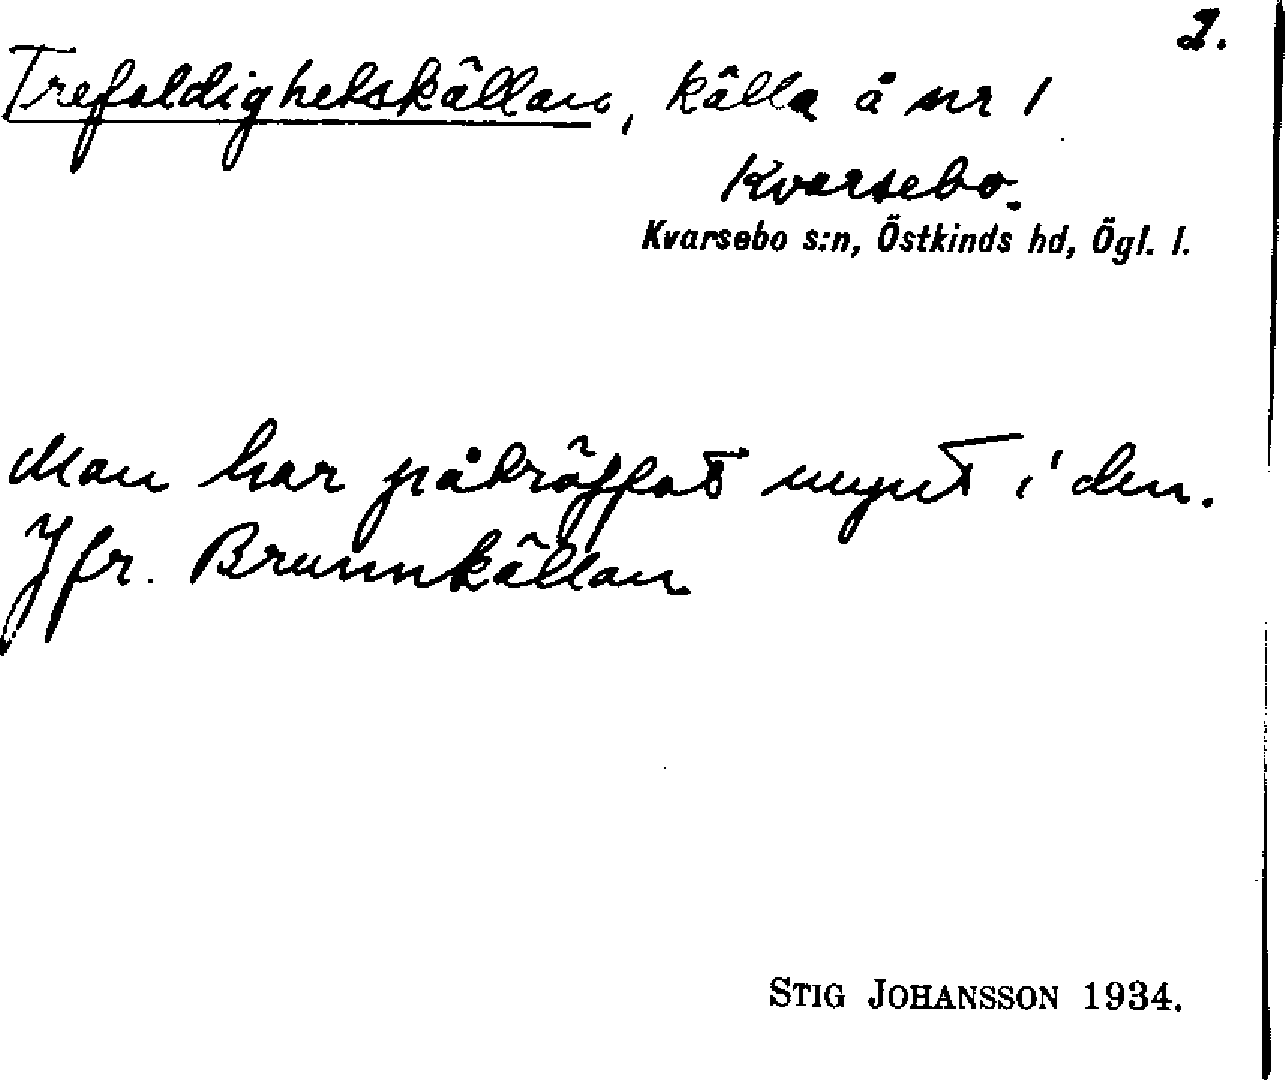 2.
Trefaldighetskällan, källa å nr 1
Kvarsebo.
Kvarsebo s:n, Östkinds hd, Ögl. l.
Man har påträffat mynt i den.
Jfr. Brunnkällan
STIG JOHANSSON 1934.